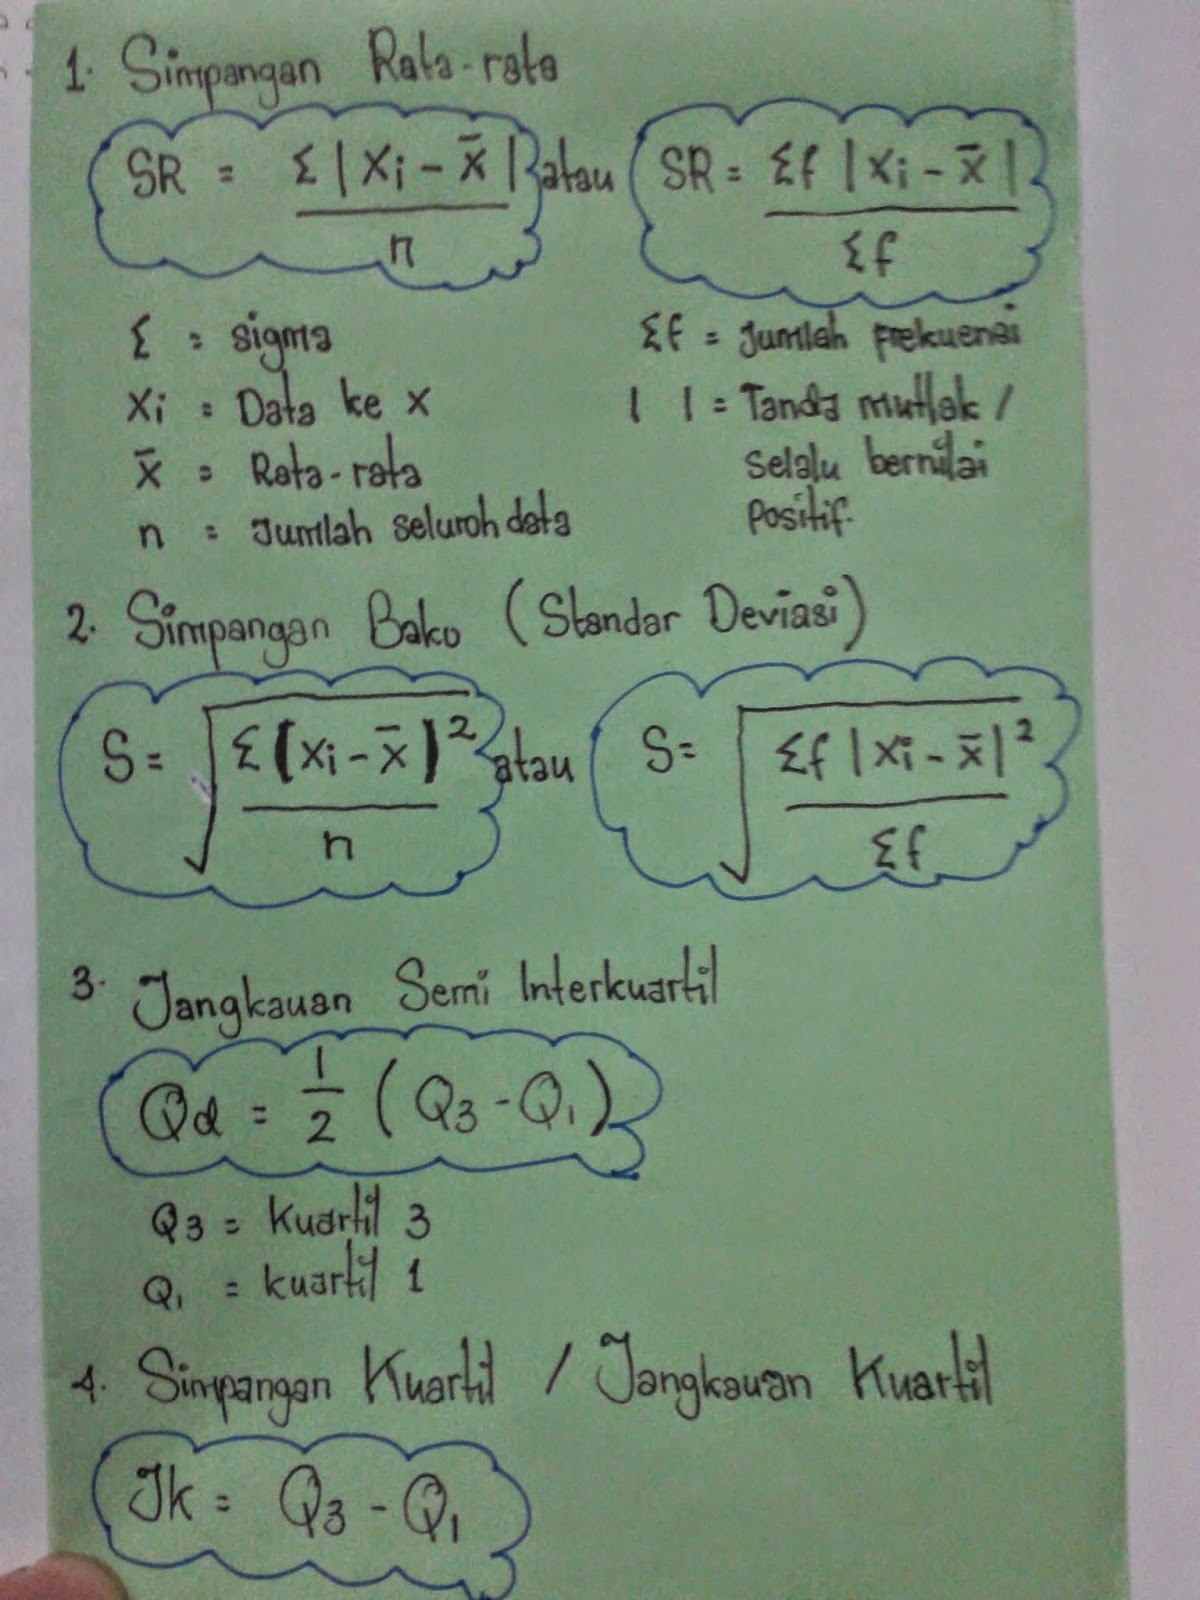 1. Simpangan Rata-rata
SR = Σ | Xi - x̄ | / n atau SR = Σf | Xi - x̄ | / Σf
Σ = sigma
Xi = Data ke x
x̄ = Rata-rata
n = Jumlah seluruh data
Σf = Jumlah frekuensi
| | = Tanda mutlak /
selalu bernilai
positif.
2. Simpangan Baku (Standar Deviasi)
S = √ Σ (Xi - x̄)² / n atau S = √ Σf | Xi - x̄ |² / Σf
3. Jangkauan Semi Interkuartil
Qd = 1/2 (Q3 - Q1)
Q3 = Kuartil 3
Q1 = kuartil 1
4. Simpangan Kuartil / Jangkauan Kuartil
Jk = Q3 - Q1